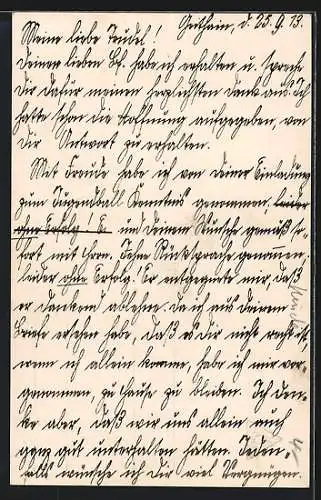 Geithain, d. 25.9.13.
Meine liebe Trudel!
Deinen lieben Bf. habe ich erhalten u. spreche
Dir dafür meinen herzlichsten Dank aus. Ich
hatte schon die Hoffnung aufgegeben, von
Dir Antwort zu erhalten.
Mit Freude habe ich von deiner Einladung
zum Jugendball Kenntnis genommen, leider
ohne Erfolg! E. und deinem Wunsche gemäß so-
fort mit Hrn. Rücksprache genommen,
leider ohne Erfolg! Er entgegnete mir, daß
er dankend ablehne. Da ich aus deinem
Briefe ersehen habe, daß es dir nicht recht ist
wenn ich allein komme, habe ich mir vor-
genommen, zu Hause zu bleiben. Ich den-
ke aber, daß wir uns allein auch
ganz gut unterhalten hätten. Jeden-
falls wünsche ich Dir viel Vergnügen.